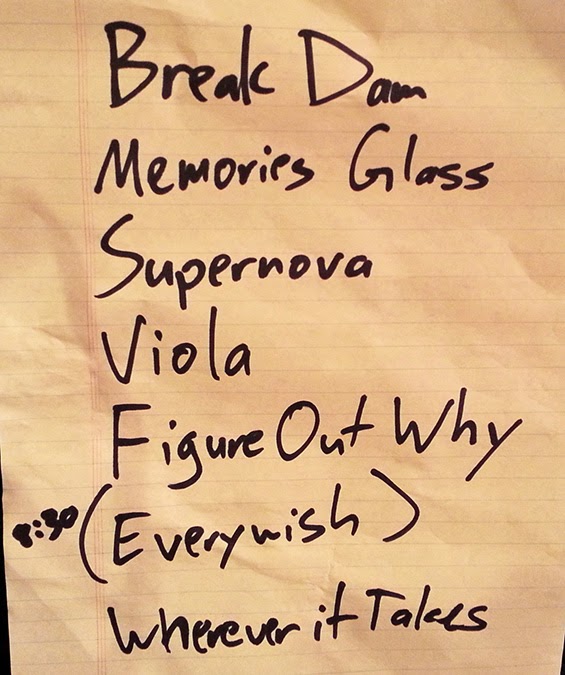 Break Dam
Memories Glass
Supernova
Viola
Figure Out Why
8:30 (Everywish)
Wherever it Takes